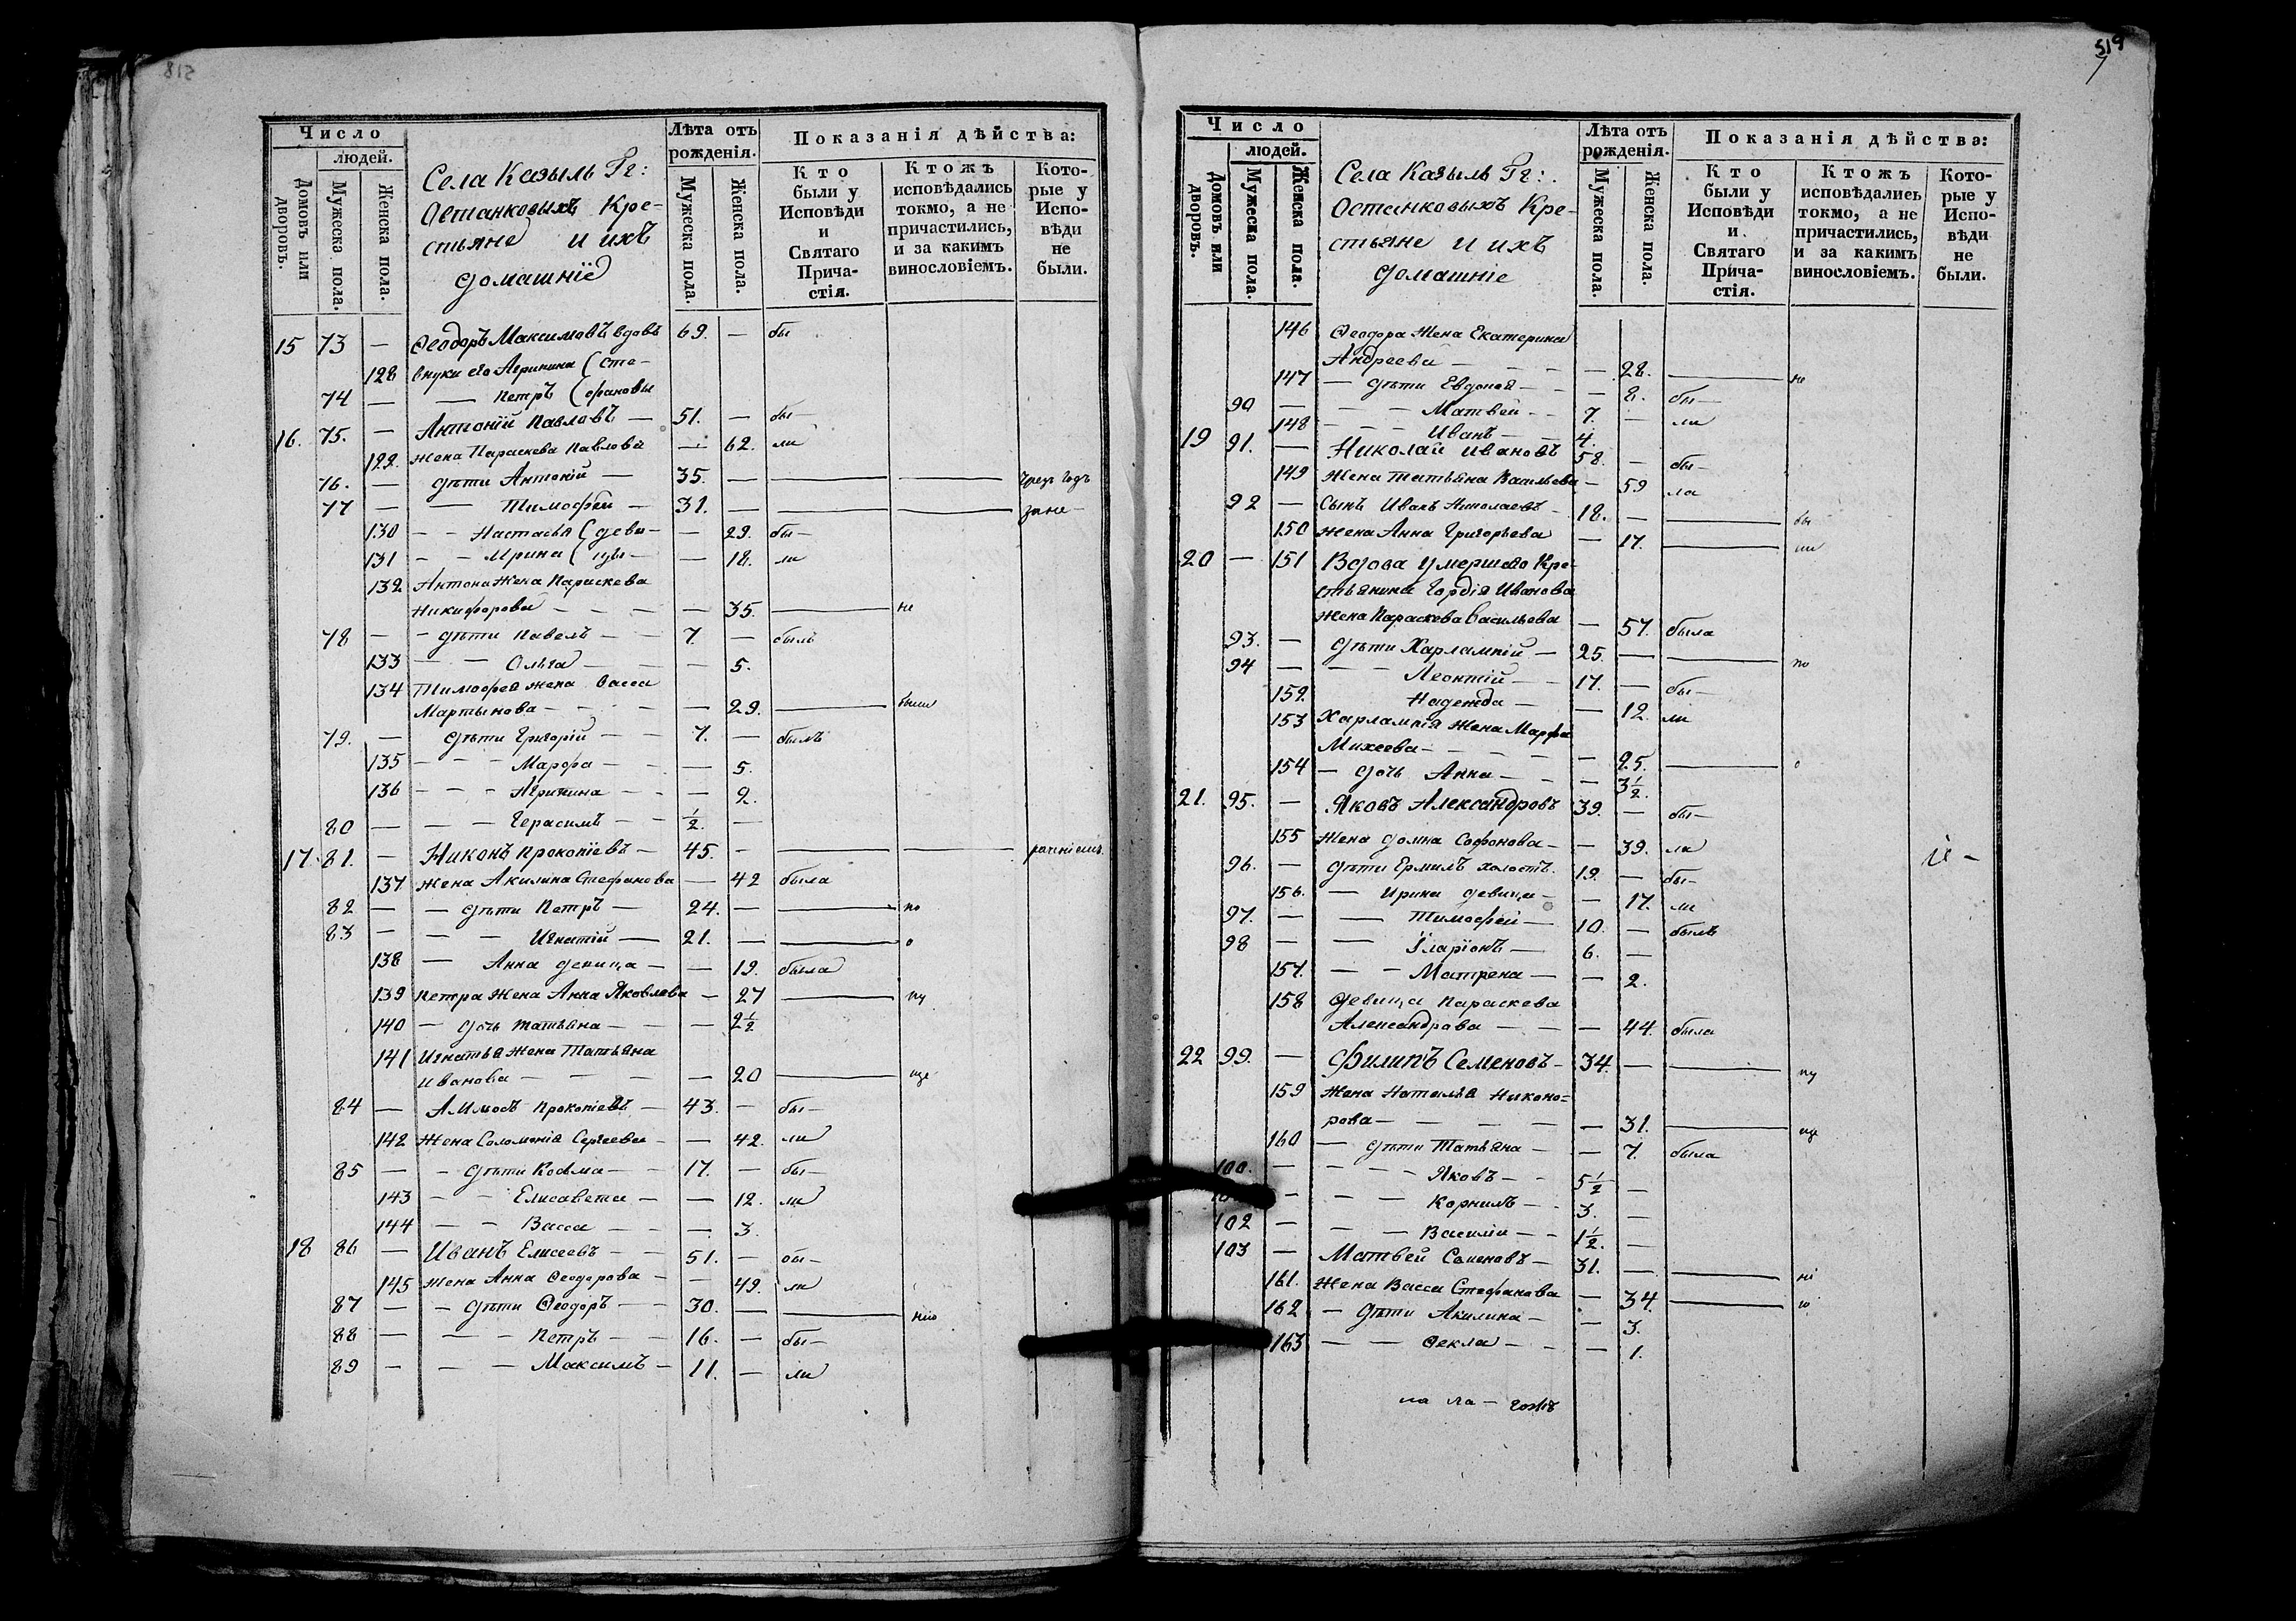 518
Число
людей.
Домовъ или дворовъ.
Мужеска пола.
Женска пола.
Села Казыль Гг:
Останковыхъ Кре-
стьяне и ихъ
домашніе
Лѣта отъ рожденія.
Мужеска пола.
Женска пола.
Показанія дѣйства:
Кто были у Исповѣди и Святаго Прича-стія.
Ктожъ исповѣдались токмо, а не причастились, и за какимъ винословіемъ.
Кото-рые у Испо-вѣди не были.
15 73 — Ѳеодоръ Максимовъ вдовъ 69. — бы
128 внуки его Агрипина (Сте-
74 — — Петръ (фановы
16. 75. — Антоній Павловъ — 51. — бы—
129. жена Параскева Павлова — 62. ли
76. — дѣти Антоній — 35. — — —
77 — — Тимофей — 31. — — — за не—
130 — — Настасья (деви— — 29. бы—
131 — — Ирина (цы — — 18. ли
132 Антона жена Параскева
Никифорова — — — — 35. — не
78 — — дѣти Павелъ — — 7. — былъ
133 — — Ольга — — — 5.
134 Тимофея жена Васса
Мартынова — — — — 29. — были
79. — дѣти Григорій — — 7. — былъ
135 — — — Марфа — — — 5.
136 — — — Агрипина — — — 2.
80 — — — Герасимъ — — 1/2. —
17. 81. — Никонъ Прокопіевъ — 45. — — — раченіемъ.
137 жена Акилина Стефанова — 42 была
82 — — дѣти Петръ — 24. — — по
83 — — — Игнатій — 21. — — о
138 — Анна девица — — 19. была
139 Петра жена Анна Яковлева — 27 — пу
140 — дочь Татьяна — — — 2 1/2
141 Игнатья жена Татьяна
Иванова — — — — 20 — ще
84 — Аммосъ Прокопіевъ — 43. — бы—
142 жена Соломонія Сергеева — — 42. ли
85 — — дѣти Козьма — — 17. — бы—
143 — — Елисавета — — 12. ли
144 — — Васса — — — 3.
18 86 — Иванъ Елисеевъ — — 51. — бы—
145 жена Анна Ѳеодорова — — 49. ли
87 — — дѣти Ѳеодоръ — 30. — — нію
88 — — — Петръ — — 16. — бы—
89 — — — Максимъ — 11. — ли
519
Число
людей.
Домовъ или дворовъ.
Мужеска пола.
Женска пола.
Села Казыль Гг:
Останковыхъ Кре-
стьяне и ихъ
домашніе
Лѣта отъ рожденія.
Мужеска пола.
Женска пола.
Показанія дѣйства:
Кто были у Исповѣди и Святаго Прича-стія.
Ктожъ исповѣдались токмо, а не причастились, и за какимъ винословіемъ.
Кото-рые у Испо-вѣди не были.
146 Ѳеодора жена Екатерина
Андреева — — — — 28. — не
147 — дѣти Евдокея — — — 8. бы—
90 — — — Матвей — — 7. — ли
148 — — — Иванъ — — 4.
19 91. — Николай Ивановъ 58. — бы—
149 жена Татьяна Васильева — 59 ла
92 — Сынъ Иванъ Николаевъ — 18. — — бы
150 жена Анна Григорьева — 17. — ли
20 — 151 Вдова умершаго Кре-
стьянина Гордія Иванова
жена Параскева Васильева — 57. была
93. — дѣти Харлампій — 25. — — по
94 — — — Леонтій — — 17. — бы—
152. Надежда — — 12. ли
153 Харлампія жена Марфа
Михеева — — — — 25. — о
154 — дочь Анна — — — 3 1/2.
21. 95. — Яковъ Александровъ 39. — бы—
155 жена Домна Софонова — — 39. ли
96. — дѣти Ермилъ холостъ. 19. — бы—
156. — Ирина девица — — 17. ли
97. — — Тимофей — 10. — былъ
98 — — Иларіонъ — 6. —
157. — — Матрена — — 2.
158 Девица Параскева
Александрова — — — 44. была
22 99. — Филипъ Семеновъ — 34. — — пу
159 жена Наталья Никоно=
рова — — — — — 31. — ще
160 — дѣти Татьяна — — 7. была
100. — — — — Яковъ — — 5 1/2 —
— — — Корнилъ — — 3. —
102 — — — Василій — — 1 1/2. —
103 — Матвей Семеновъ — 31. — — ні
161. жена Васса Стефанова — 34. — ю
162 — дѣти Акилина — — 3.
163 — — Ѳекла — — — 1.